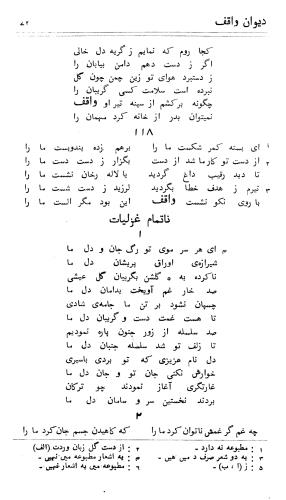 دیوان واقف
۷۲
کجا روم که نمایم ز گریه دل خالی
اگر ز دست دهم دامن بیابان را
ز دستبرد هوای تو زین چمن چون گل
نبرده است سلامت کسی گریبان را
چگونه برکشم از سینه تیر او واقف
نمیتوان بدر از خانه کرد مهمان را
۱۱۸
ای بسته کمر شکست ما را برهم زده بندوبست ما را
از دست تو کار ما شد از دست بگزار ز دست دست ما را
تا دید رقیب داغ گردید با لاله رخان نشست ما را
تیرم ز هدف خطا بگردید لرزید ز دست شست ما را
با روی نکو نشست واقف این بود مگر الست ما را
ناتمام غزلیات
۱
ای هر سر موی تو رگ جان و دل ما
شیرازهٔ اوراق پریشان دل ما
ناکرده به گلشن بگریبان گل عیشی
صد خار غم آویخت بدامان دل ما
چسپان نشود بر تن ما جامهٔ شادی
تا هست غمت دست و گریبان دل ما
صد سلسله از زور جنون پاره نمودیم
تا زلف تو شد سلسله جنبان دل ما
دل نام عزیزی که تو بردی باسیری
خوارش نکنی جان تو و جان دل ما
غارتگری آغاز نمودند چو ترکان
بردند نخستین سر و سامان دل ما
۲
چه غم گر غمش ناتوان کرد ما را که کاهیدن جسم جان کرد ما را
۱ : مطبوعه نه دارد -
۲ : از دست گل زبان وردت (الف)
۳ : به دو شعر صرف د مین هین -
۴ : به اشعار مطبوعه مین نهین -
۵ : ز (ا ، ب) -
۶ : مطبوعه مین به اشعار نهین -